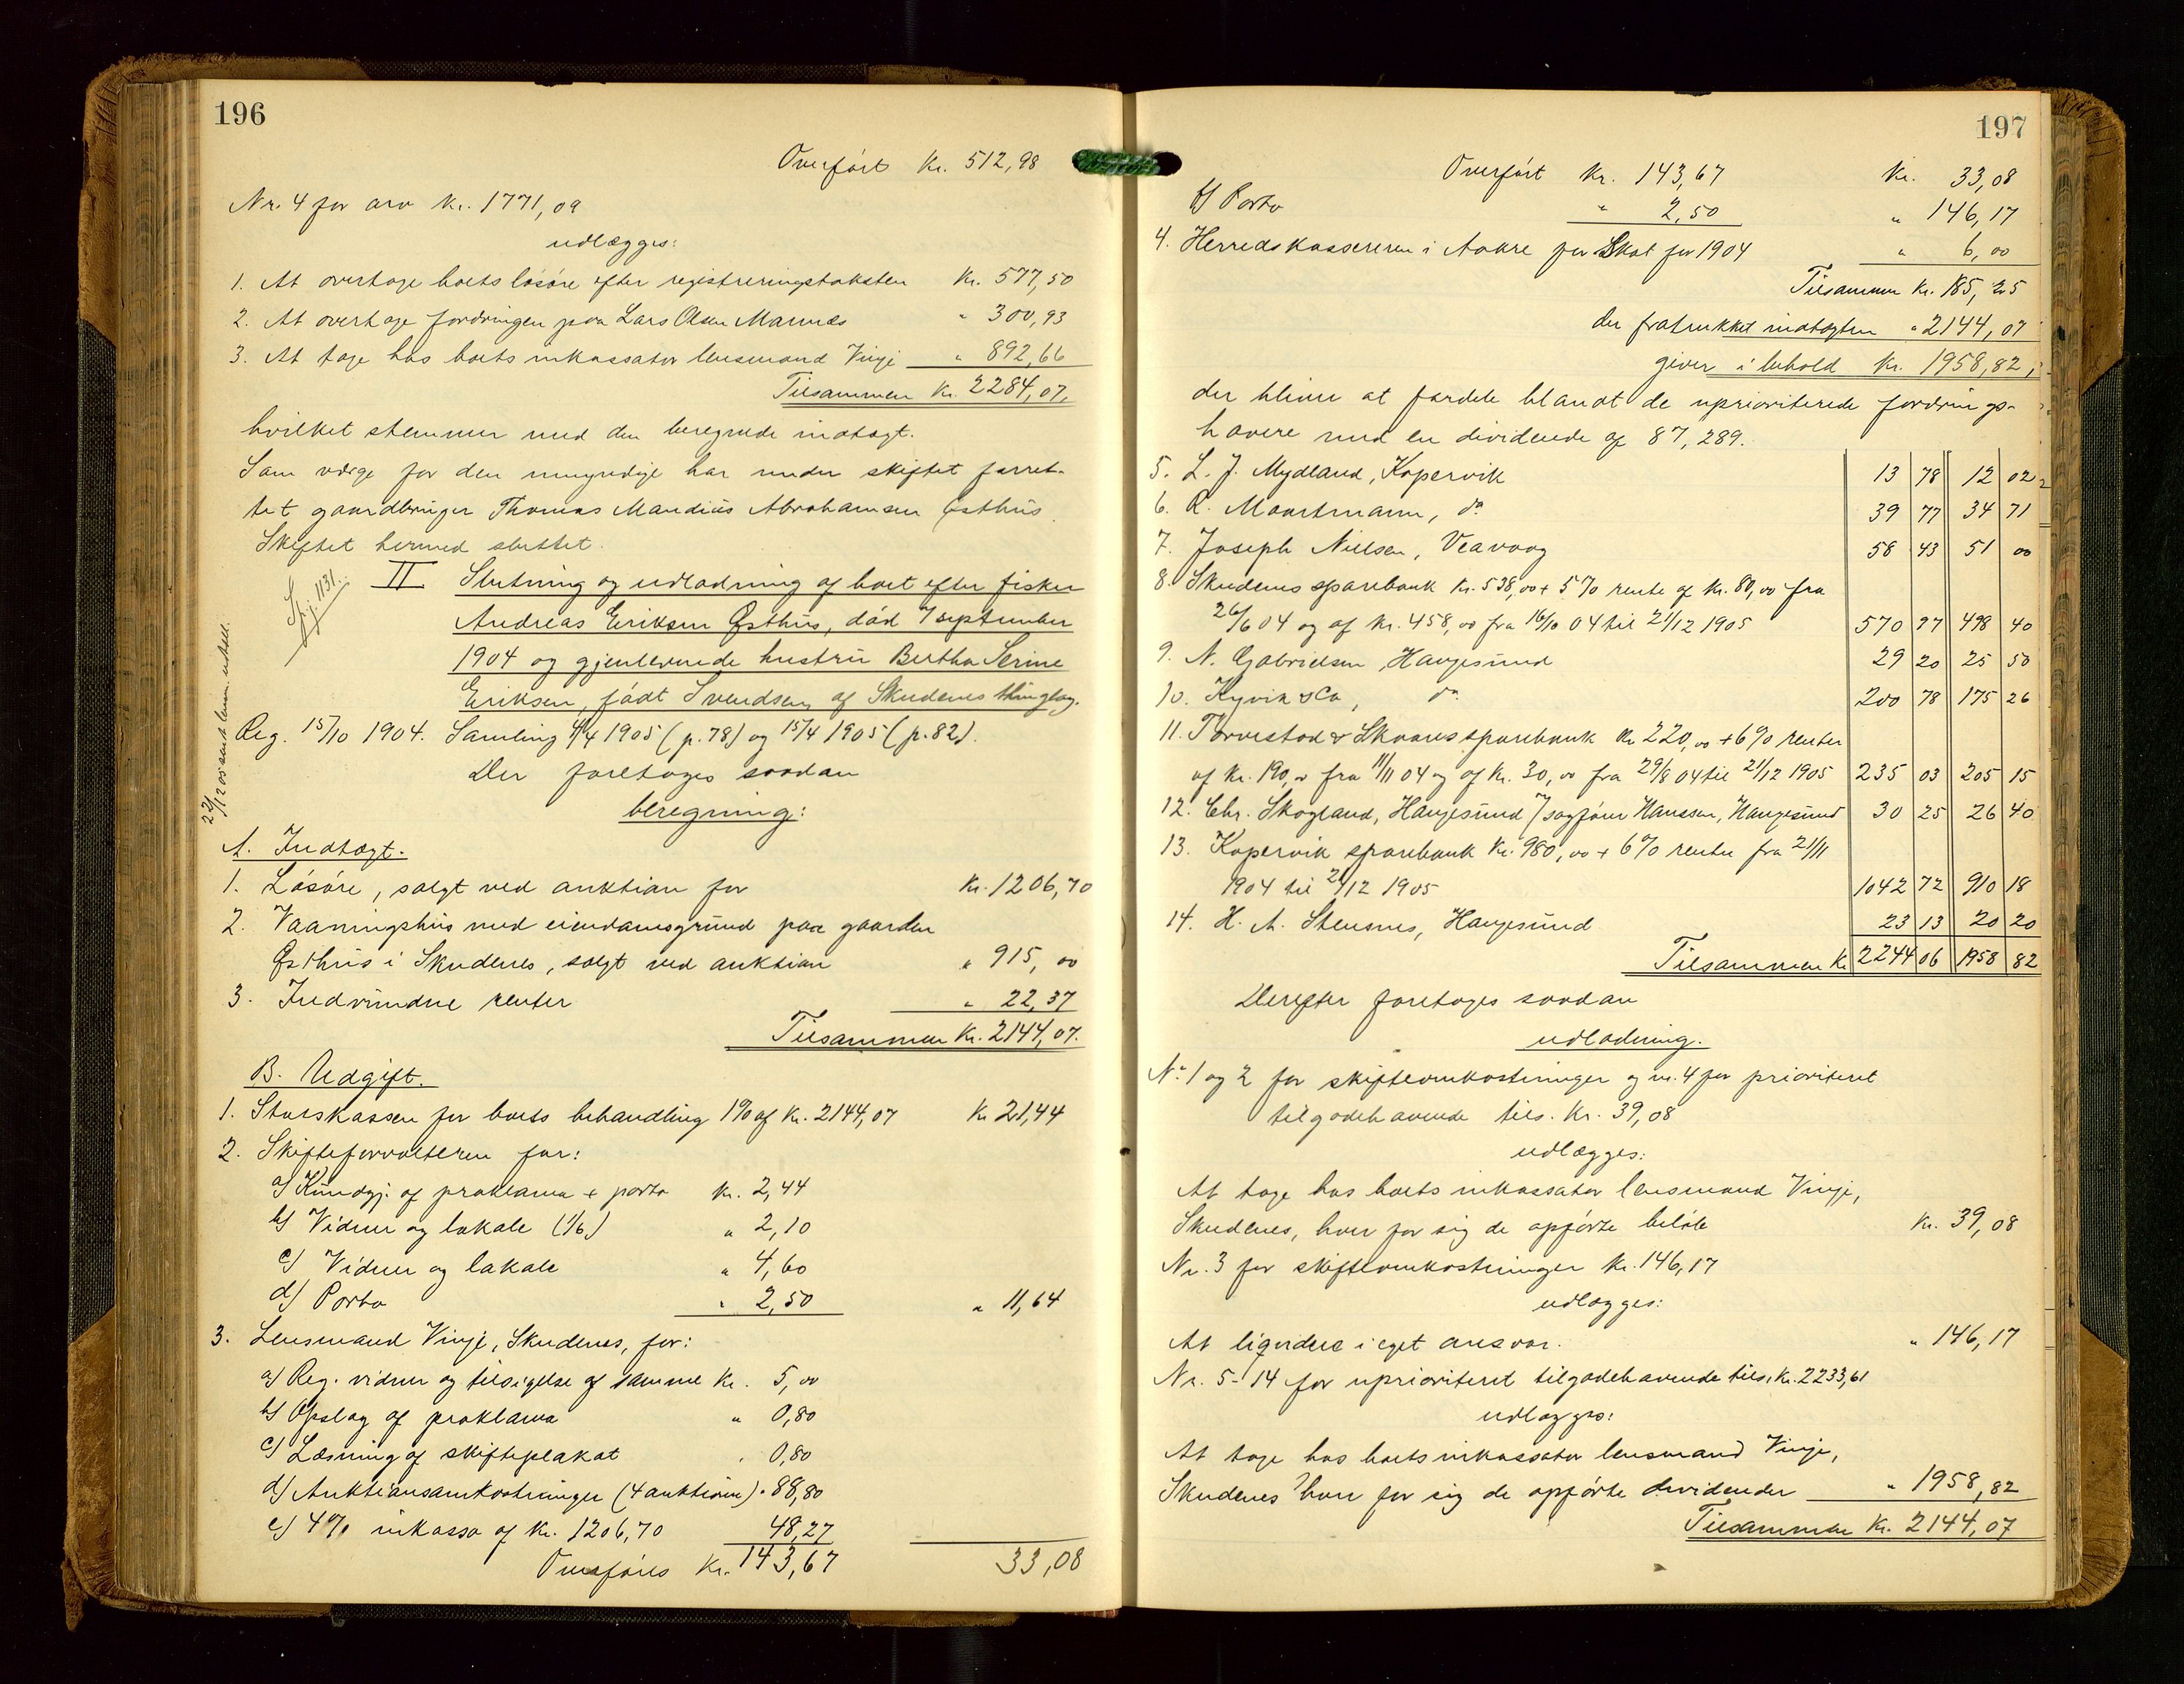 196
Overført Kr. 512,98
Nr. 4 for arv Kr. 1771,09
udlægges:
1. At overtage boets løsøre efter registreringstaksten Kr. 577,50
2. At overtage fordringen paa Lars Olsen Mannes " 300,93
3. At tage hos boets inkassator lensmand Vinje " 892,66
Tilsammen Kr. 2284,07,
hvilket stemmer med den beregnede indtægt.
Som værge for den umyndige har under skiftet forret-
tet gaardbruger Thomas Mandius Abrahamsen Østhus.
Skiftet hermed sluttet.
II Slutning og udlodning af boet efter fisker
Andreas Eriksen Østhus, død 7 september
1904 og gjenlevende hustru Bertha Serine
Eriksen, født Svendsen, af Skudenes thinglag.
Spj. 1131.
Reg. 15/10 1904. Samling 4/4 1905 (p. 78) og 15/4 1905 (p. 82).
Der foretages saadan
beregning:
A. Indtægt.
1. Løsøre, solgt ved auktion for Kr. 1206,70
2. Vaaningshus med eiendomsgrund paa gaarden
Østhus i Skudenes, solgt ved auktion " 915,00
3. Indvundne renter " 22,37
Tilsammen Kr. 2144,07.
B. Udgift.
1. Statskassen for boets behandling 1% af Kr. 2144,07 Kr 21,44
2. Skifteforvalteren for:
a) Kundgj. af proklama + porto Kr. 2,44
b) Vidner og lokale (1/6) " 2,10
c) Vidner og lokale " 4,60
d) Porto " 2,50 " 11,64
3. Lensmand Vinje, Skudenes, for:
a) Reg. vidner og tilsigelse af samme Kr. 5,00
b) Opslag af proklama " 0,80
c) Læsning af skifteplakat " 0,80
d) Auktionsomkostninger (4 auktioner) " 88,80
e) 4% inkasso af Kr. 1206,70 48,27
Overføres Kr. 143,67 33,08
197
Overført Kr. 143,67 Kr. 33,08
f) Porto " 2,50 " 146,17
4. Herredskassereren i Aakre for Skat for 1904 " 6,00
Tilsammen Kr. 185,25
der fratrukket indtægten " 2144,07
giver i behold Kr. 1958,82,
der bliver at fordele blandt de uprioriterede fordrings-
havere med en dividende af 87,289.
5. L. J. Mydland, Kopervik 13 78 12 02
6. R. Maartmann, do 39 77 34 71
7. Joseph Nielsen, Veavaag 58 43 51 00
8. Skudenes sparebank Kr. 538,00 + 5% rente af Kr. 80,00 fra
26/6 04 og af Kr. 458,00 fra 16/10 04 til 21/12 1905 570 97 498 40
9. N. Gabrielsen, Haugesund 29 20 25 50
10. Kyvik & Co, do 200 78 175 26
11. Torvestad & Skaares sparebank Kr 220,00 + 6% renter
af Kr. 190,00 fra 11/11 04 og af Kr. 30,00 fra 29/8 04 til 21/12 1905 235 03 205 15
12. Chr. Skogland, Haugesund / sagfører Hanssen, Haugesund 30 25 26 40
13. Kopervik sparebank Kr. 980,00 + 6% renter fra 21/11
1904 til 21/12 1905 1042 72 910 18
14. H. A. Stensnes, Haugesund 23 13 20 20
Tilsammen Kr 2244 06 1958 82
Derefter foretages saadan
udlodning.
No 1 og 2 for skifteomkostninger og nr. 4 for prioriteret
tilgodehavende tils. Kr. 39,08
udlægges:
At tage hos boets inkassator lensmand Vinje,
Skudenes, hver for sig de opførte beløb Kr. 39,08
Nr. 3 for skifteomkostninger Kr. 146,17
udlægges:
At liqvidere i eget ansvar. " 146,17
Nr. 5-14 for uprioriteret tilgodehavende tils. Kr. 2233,61
udlægges:
At tage hos boets inkassator lensmand Vinje,
Skudenes hver for sig de opførte dividender " 1958,82
Tilsammen Kr. 2144,07